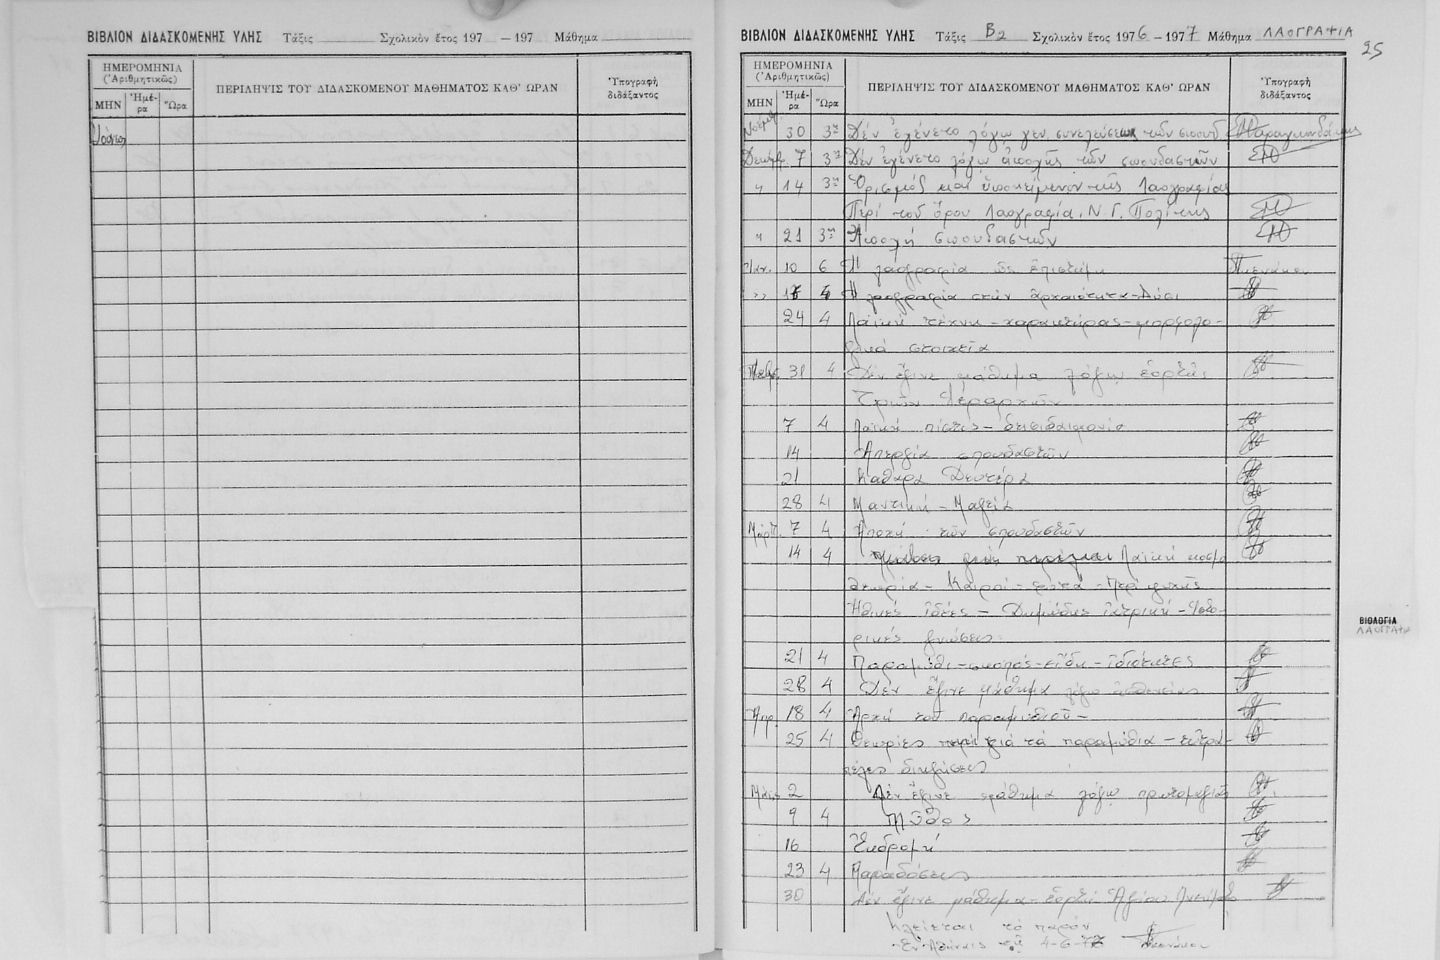 ΒΙΒΛΙΟΝ ΔΙΔΑΣΚΟΜΕΝΗΣ ΥΛΗΣ Τάξις Σχολικὸν ἔτος 197 — 197 Μάθημα
ΗΜΕΡΟΜΗΝΙΑ
(Ἀριθμητικῶς)
ΜΗΝ Ἡμέ-
ρα Ὥρα
ΠΕΡΙΛΗΨΙΣ ΤΟΥ ΔΙΔΑΣΚΟΜΕΝΟΥ ΜΑΘΗΜΑΤΟΣ ΚΑΘ' ΩΡΑΝ
Ὑπογραφὴ
διδάξαντος
ΒΙΒΛΙΟΝ ΔΙΔΑΣΚΟΜΕΝΗΣ ΥΛΗΣ Τάξις Β2 Σχολικὸν ἔτος 1976 — 1977 Μάθημα ΛΑΟΓΡΑΦΙΑ
25
ΗΜΕΡΟΜΗΝΙΑ
(Ἀριθμητικῶς)
ΜΗΝ Ἡμέ-
ρα Ὥρα
ΠΕΡΙΛΗΨΙΣ ΤΟΥ ΔΙΔΑΣΚΟΜΕΝΟΥ ΜΑΘΗΜΑΤΟΣ ΚΑΘ' ΩΡΑΝ
Ὑπογραφὴ
διδάξαντος
Νοέμβ. 30 3η Δέν ἐγένετο λόγω γεν. συνελεύσεως τῶν σπουδ.
Δεκεμβ. 7 3η Δέν ἐγένετο λόγω ἀποχῆς τῶν σπουδαστῶν
" 14 3η Ὁρισμός καί ὑποκείμενον τῆς Λαογραφίας
Περί τοῦ ὅρου Λαογραφία. Ν. Γ. Πολίτης
" 21 3η Ἀποχή σπουδαστῶν
Ἰαν. 10 6 Ἡ λαογραφία ὡς ἐπιστήμη
>> 17 4 Ἡ λαογραφία στήν ἀρχαιότητα - Δύσι
24 4 Λαϊκή τέχνη - χαρακτήρας - μορφολο-
γικά στοιχεῖα
Φεβρ. 31 4 Δέν ἔγινε μάθημα λόγω ἑορτῆς
Τριῶν Ἱεραρχῶν
7 4 Λαϊκή πίστις - δεισιδαιμονία
14 Ἀπεργία σπουδαστῶν
21 Καθαρά Δευτέρα
28 4 Μαντική - Μαγεία
Μάρτ. 7 4 Ἀποχή τῶν σπουδαστῶν
14 4 Λαϊκή κοσμο
θεωρία - Καιροί - φυτά - Περί ψυχῆς
Ἠθικές ἰδέες - Δημώδης ἰατρική - Ἱστο-
ρικές γνώσεις.
21 4 Παραμύθι - σκοπός - εἴδη - ἰδιότητες
28 4 Δέν ἔγινε μάθημα λόγω ἀσθενείας
Ἀπρ. 18 4 Ἀρχή τοῦ παραμυθιοῦ -
25 4 Θεωρίες γιά τά παραμύθια - εὐτρά-
πελες διηγήσεις
Μάιος 2 Δέν ἔγινε μάθημα λόγω πρωτομαγιᾶς
9 4 Μῦθος
16 Ἐκδρομή
23 4 Παραδόσεις
30 Δέν ἔγινε μάθημα - ἑορτή Ἁγίου Πνεύματο
Κλείεται τό παρόν
Ἐν Ἀθήναις τῇ 4-6-77
ΒΙΟΛΟΓΙΑ
ΛΑΟΓΡΑΦΙ